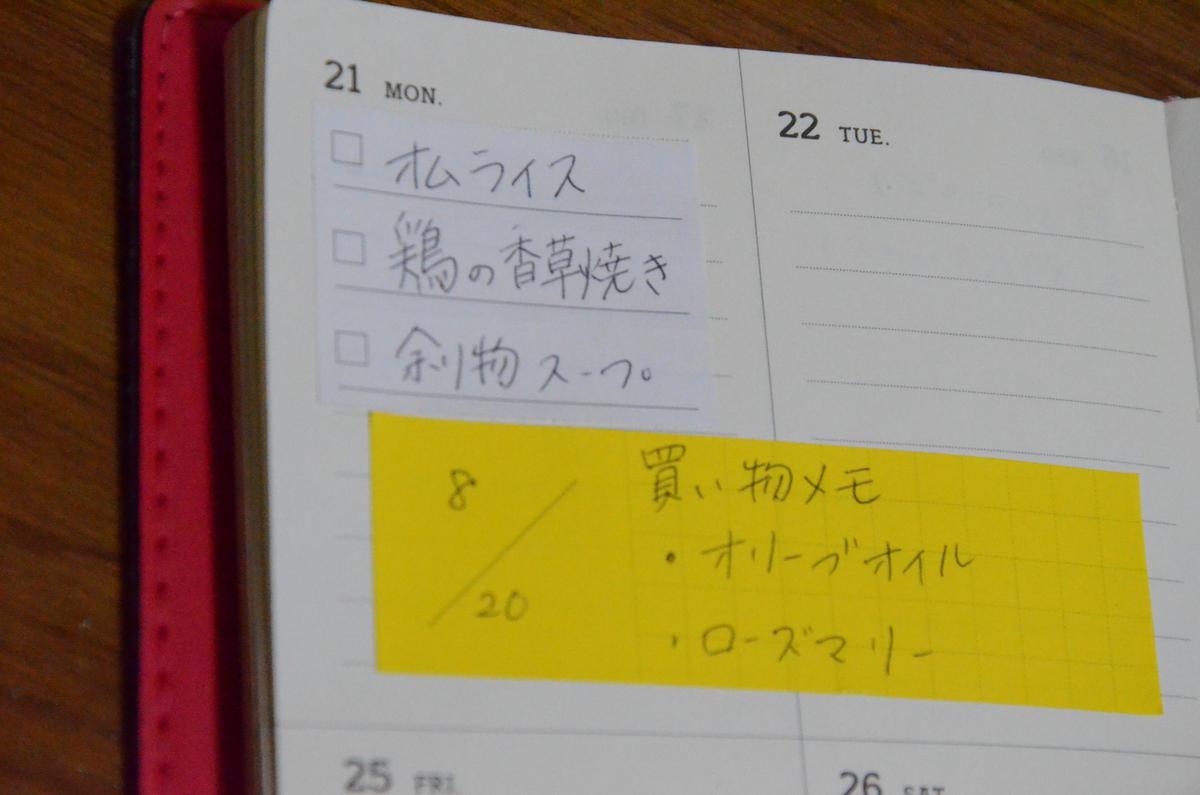 21 MON.
□ オムライス
□ 鶏の香草焼き
□ 余り物スープ。
22 TUE.
8/20
買い物メモ
・オリーブオイル
・ローズマリー
25 FRI.
26 SAT.